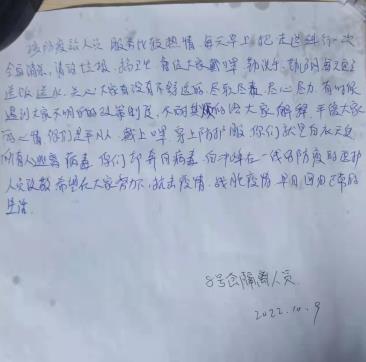 该防疫站人员 服务比较热情 每天早上把走道进行一次
全面消杀,清除垃圾,搞卫生 督促大家戴口罩 勤洗手
送饭送水 关心大家有没有不舒适的 尽职尽责 尽心尽力 有时候
遇到大家不明白的政策制度,不耐其烦的给大家解释 平复大家
的心情 你们是平凡人 戴上口罩 穿上防护服 你们就是白衣天使
所有人逃离病毒 你们却奔向病毒 向冲锋在一线的防疫的医护
人员致敬 希望在大家努力下,抗击疫情 战胜疫情 早日回归正常的
生活.
8号仓隔离人员
2022.10.9